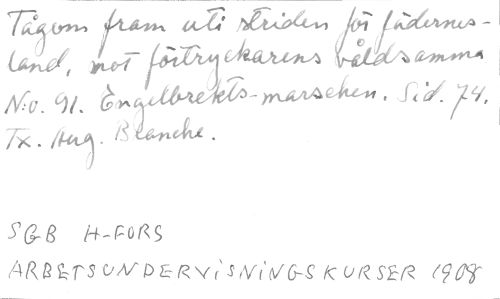 Tågom fram uti striden för fädernes-
land, mot förtryckarens våldsamma
N:o. 91. Engelbrekts-marschen. Sid. 74.
Tx. Aug. Blanche.
SGB H-FORS
ARBETSUNDERVISNINGSKURSER 1908